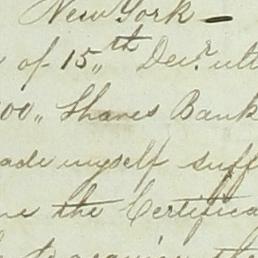 New York —
of 15,, th Decr. ult
00,, Shares Bank
ade myself suff
the Certifica